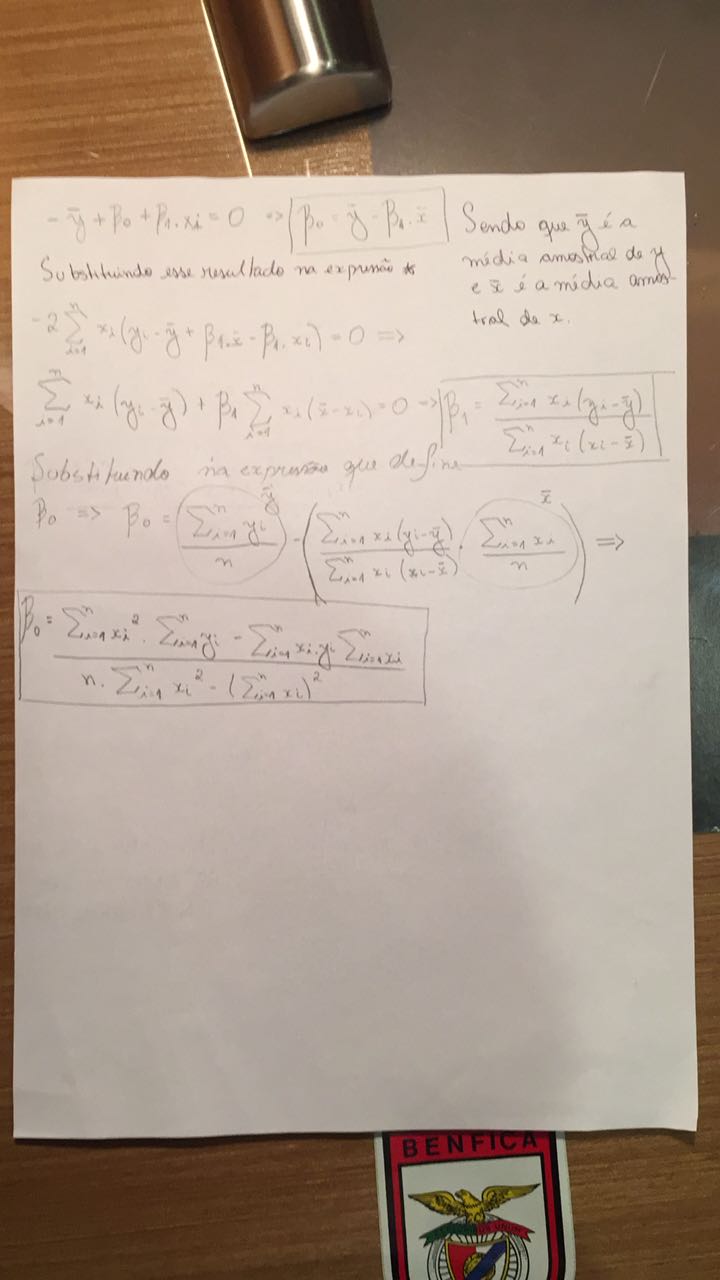 - ȳ + β₀ + β₁.xi = 0 => β₀ = ȳ - β₁.x̄
Sendo que ȳ é a
média amostral de y
e x̄ é a média amos-
tral de x.
Substituindo esse resultado na expressão *
-2 ∑ⁿᵢ₌₁ xi (yi - ȳ + β₁.x̄ - β₁.xi) = 0 =>
∑ⁿᵢ₌₁ xi (yi - ȳ) + β₁ ∑ⁿᵢ₌₁ xi (x̄ - xi) = 0 => β₁ = ∑ⁿᵢ₌₁ xi (yi - ȳ) / ∑ⁿᵢ₌₁ xi (xi - x̄)
Substituindo na expressão que define
β₀ => β₀ = ∑ⁿᵢ₌₁ yi / n ȳ - ( ∑ⁿᵢ₌₁ xi (yi - ȳ) / ∑ⁿᵢ₌₁ xi (xi - x̄) . ∑ⁿᵢ₌₁ xi / n x̄ ) =>
β₀ = ∑ⁿᵢ₌₁ xi² . ∑ⁿᵢ₌₁ yi - ∑ⁿᵢ₌₁ xi.yi ∑ⁿᵢ₌₁ xi / n . ∑ⁿᵢ₌₁ xi² - (∑ⁿᵢ₌₁ xi)²
BENFICA